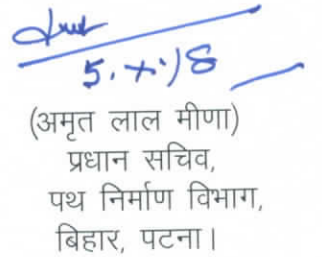 5.X.18
(अमृत लाल मीणा)
प्रधान सचिव,
पथ निर्माण विभाग,
बिहार, पटना।